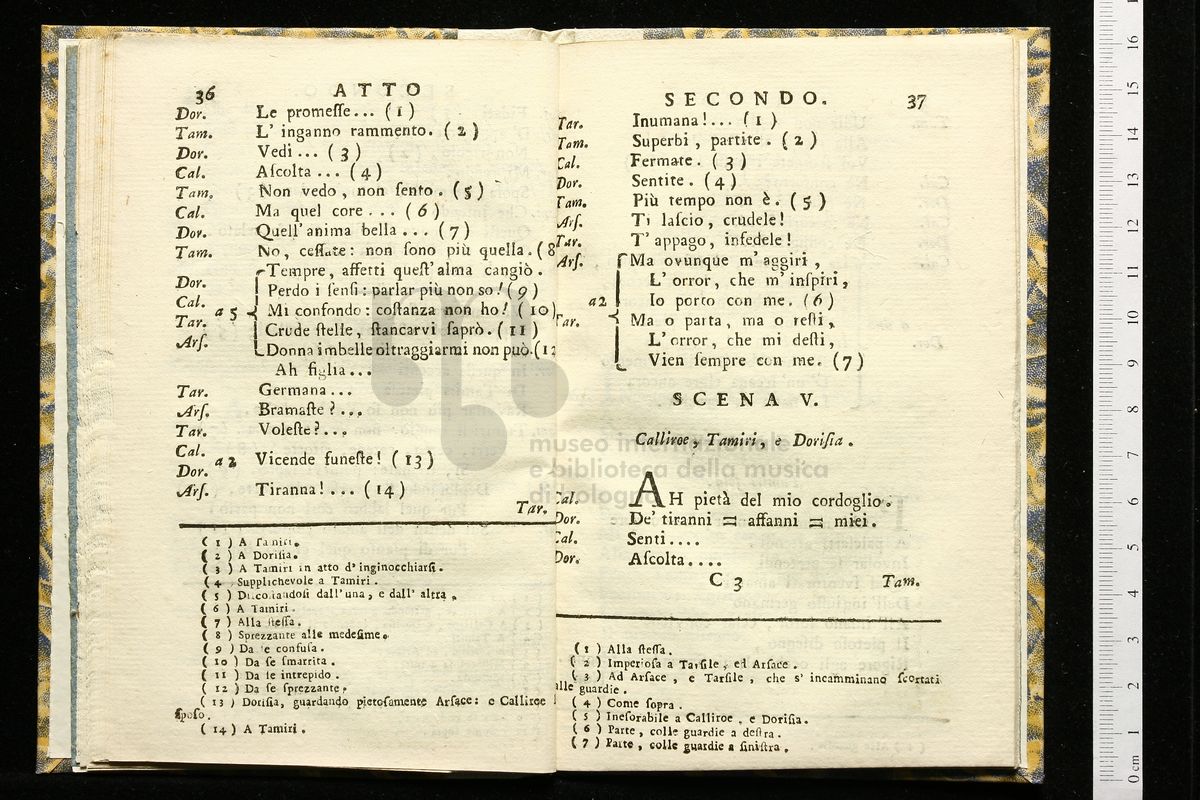 36 ATTO
Dor. Le promeſſe... (1)
Tam. L' inganno rammento. (2)
Dor. Vedi... (3)
Cal. Aſcolta... (4)
Tam. Non vedo, non ſento. (5)
Cal. Ma quel core... (6)
Dor. Quell' anima bella... (7)
Tam. No, ceſſate: non ſono più quella. (8
Tempre, affetti queſt' alma cangiò.
Dor. Perdo i ſenſi: parlar più non so! (9)
Cal. a 5 Mi confondo: coſtanza non ho! (10)
Tar. Crude ſtelle, ſtancarvi ſaprò. (11)
Arſ. Donna imbelle oltraggiarmi non può. (12
Ah figlia...
Tar. Germana...
Arſ. Bramaſte?...
Tar. Voleſte?...
Cal. Dor. a 2 Vicende funeſte! (13)
Arſ. Tiranna!... (14)
Tar.
(1) A Tamiri.
(2) A Doriſia.
(3) A Tamiri in atto d' inginocchiarſi.
(4 Supplichevole a Tamiri.
(5) Diſcoſtandoſi dall' una, e dall' altra.
(6) A Tamiri.
(7) Alla ſteſſa.
(8) Sprezzante alle medeſime.
(9) Da ſe confuſa.
(10) Da ſe ſmarrita.
(11) Da ſe intrepido.
(12) Da ſe ſprezzante.
(13) Doriſia, guardando pietoſamente Arſace: e Calliroe
ſpoſo.
(14) A Tamiri.
SECONDO. 37
Tar. Inumana!... (1)
Tam. Superbi, partite. (2)
Cal. Fermate. (3)
Dor. Sentite. (4)
Tam. Più tempo non è. (5)
Arſ. Ti laſcio, crudele!
Tar. T' appago, infedele!
Arſ. Ma ovunque m' aggiri,
L' orror, che m' inſpiri,
a 2 Io porto con me. (6)
Tar. Ma o parta, ma o reſti,
L' orror, che mi deſti,
Vien ſempre con me. (7)
SCENA V.
Calliroe, Tamiri, e Doriſia.
Cal. AH pietà del mio cordoglio.
Dor. De' tiranni = affanni = miei.
Cal. Senti....
Dor. Aſcolta....
C 3 Tam.
(1) Alla ſteſſa.
(2) Imperioſa a Tarſile, ed Arſace.
(3) Ad Arſace, e Tarſile, che s' incamminano ſcortati
alle guardie.
(4) Come ſopra.
(5) Ineſorabile a Calliroe, e Doriſia.
(6) Parte, colle guardie a deſtra.
(7) Parte, colle guardie a ſiniſtra.
museo internazionale
e biblioteca della musica
di bologna
0 cm 1 2 3 4 5 6 7 8 9 10 11 12 13 14 15 16